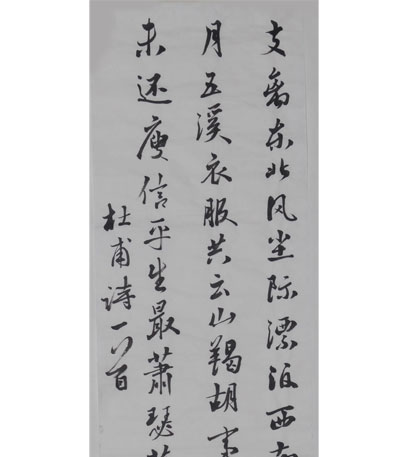 支离东北风尘际漂泊西南
月五溪衣服共云山羯胡事
未还庾信平生最蕭瑟
杜甫詩一首